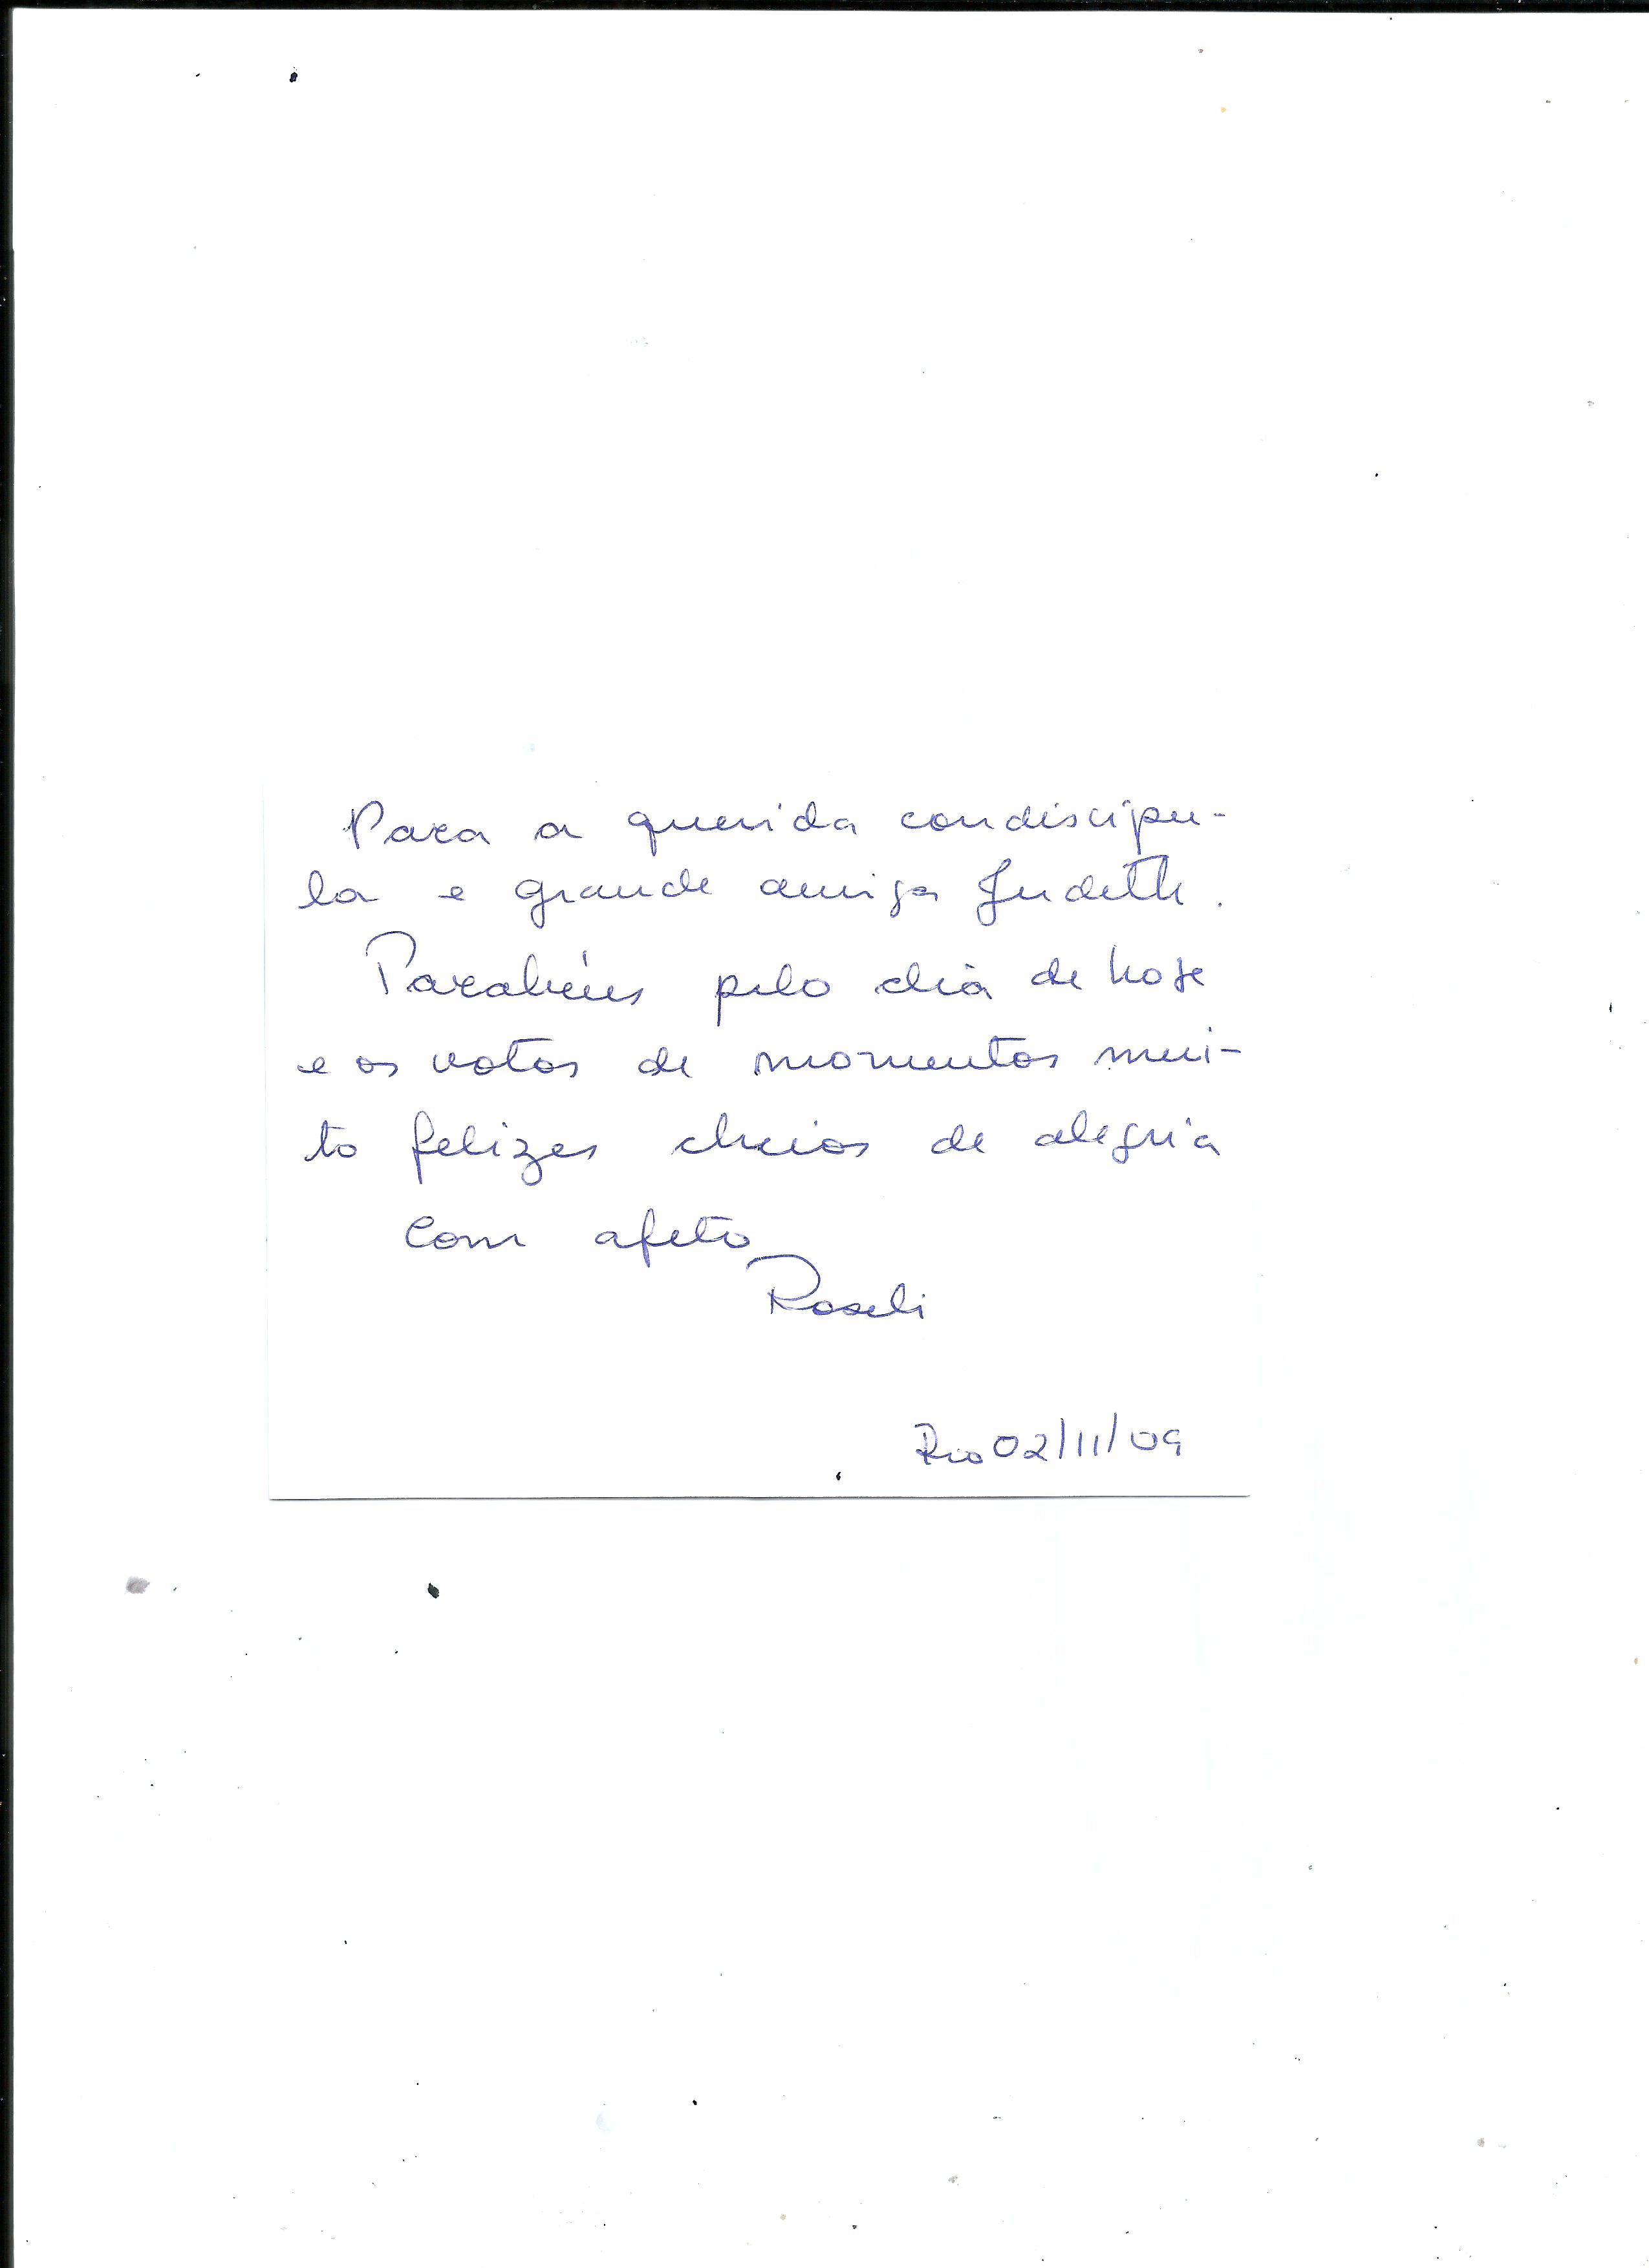 Para a querida condiscípu-
la e grande amiga Judeth.
Parabéns pelo dia de hoje
e os votos de momentos mui-
to felizes cheios de alegria
Com afeto
Roseli
Rio 02/11/09